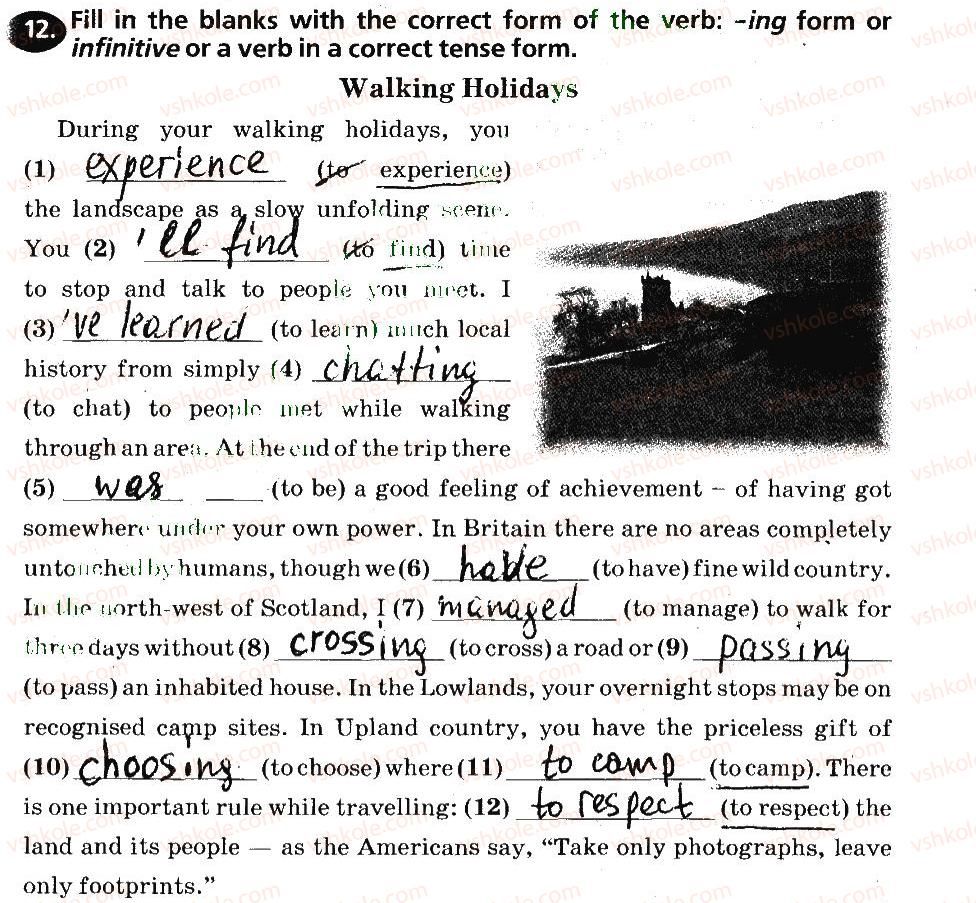 12. Fill in the blanks with the correct form of the verb: –ing form or
infinitive or a verb in a correct tense form.
Walking Holidays
During your walking holidays, you
(1) experience (to experience)
the landscape as a slow unfolding scene.
You (2) 'll find (to find) time
to stop and talk to people you meet. I
(3) 've learned (to learn) much local
history from simply (4) chatting
(to chat) to people met while walking
through an area. At the end of the trip there
(5) was (to be) a good feeling of achievement – of having got
somewhere under your own power. In Britain there are no areas completely
untouched by humans, though we (6) have (to have) fine wild country.
In the north-west of Scotland, I (7) managed (to manage) to walk for
three days without (8) crossing (to cross) a road or (9) passing
(to pass) an inhabited house. In the Lowlands, your overnight stops may be on
recognised camp sites. In Upland country, you have the priceless gift of
(10) choosing (to choose) where (11) to camp (to camp). There
is one important rule while travelling: (12) to respect (to respect) the
land and its people — as the Americans say, “Take only photographs, leave
only footprints.”